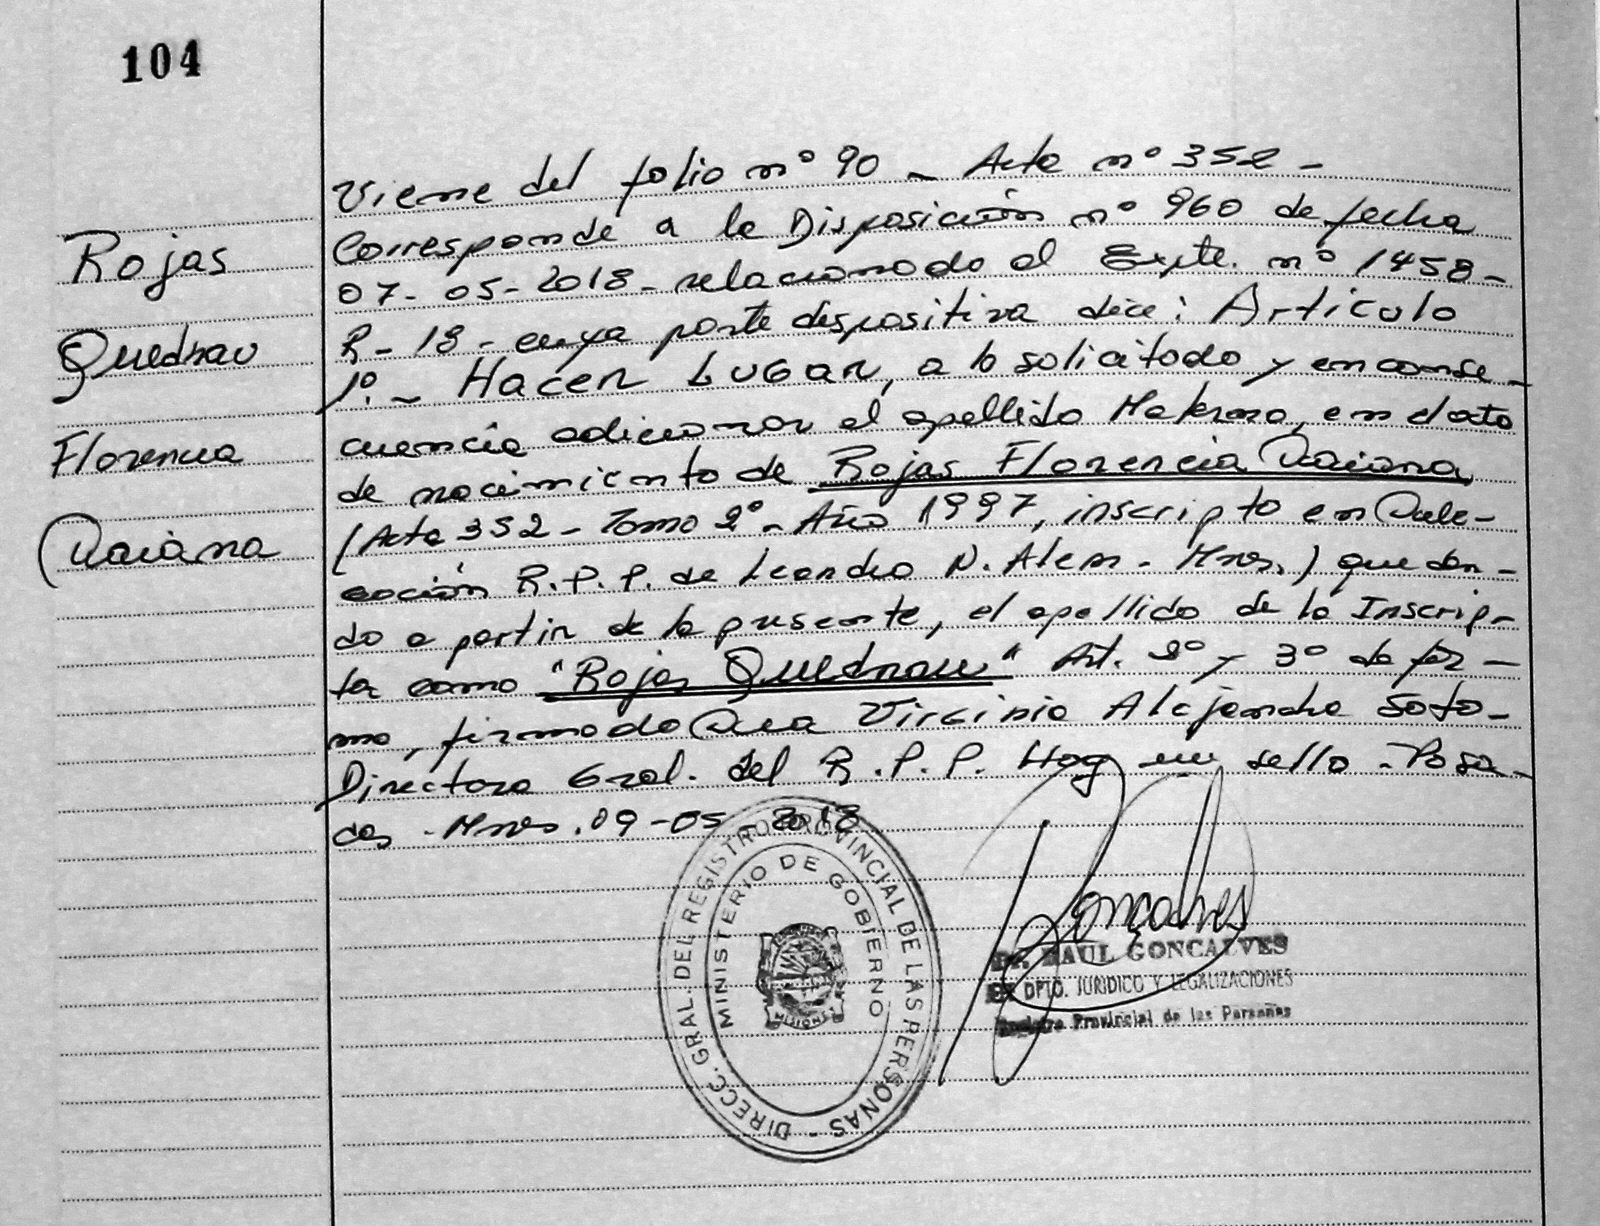 104
Rojas
Quednau
Florencia
Daiana
Viene del folio nº 90 - Acta nº 352 -
Corresponde a la Disposición nº 960 de fecha
07-05-2018 - relacionado al Expte. nº 1458-
R-18 - cuya parte dispositiva dice: Artículo
1º. - HACER LUGAR, a lo solicitado y en conse-
cuencia adicionar el apellido Materno, en el acta
de nacimiento de Rojas Florencia Daiana
(Acta 352 - Tomo 2º - Año 1997, inscripto en Dele-
gación R.P.P. de Leandro N. Alem - Mnes.) quedan-
do a partir de la presente, el apellido de la Inscrip-
ta como "Rojas Quednau" Art. 2º y 3º de for-
ma, firmado Dra Virginia Alejandra Soto -
Directora Gral. del R.P.P. Hay un sello - Posa-
das - Mnes. 09-05-2018
DIRECC. GRAL. DEL REGISTRO PROVINCIAL DE LAS PERSONAS -
MINISTERIO DE GOBIERNO
MISIONES
Goncalves
Dr. RAUL GONCALVES
DPTO. JURIDICO Y LEGALIZACIONES
Registro Provincial de las Personas